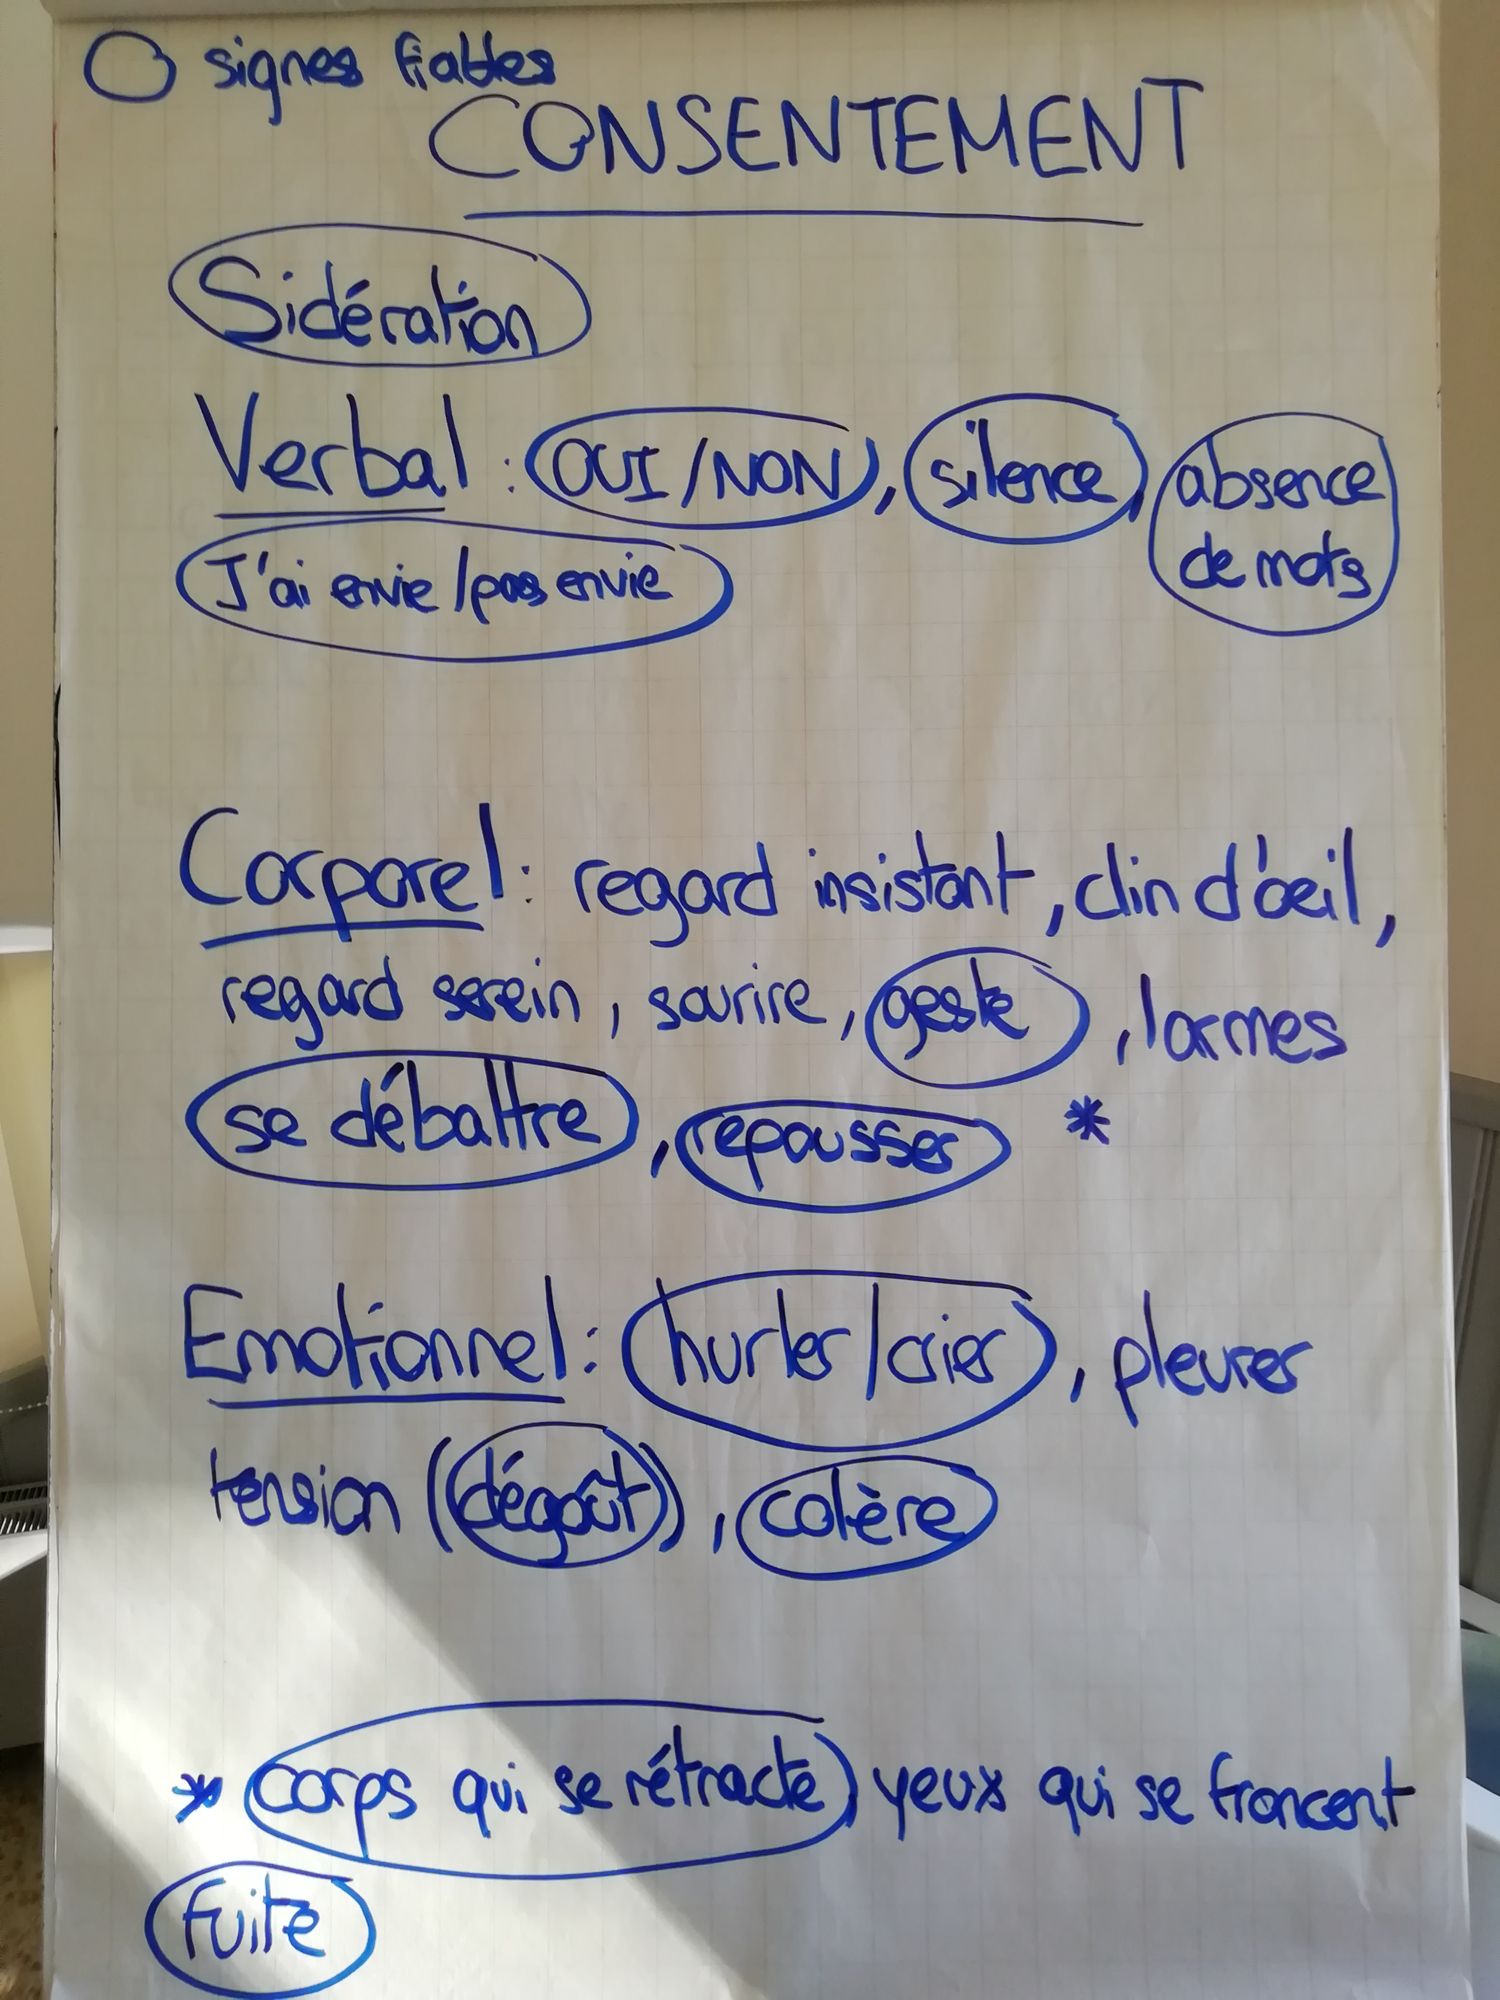 signes fiables
CONSENTEMENT
Sidération
Verbal : OUI/NON, silence, absence
de mots
J'ai envie/pas envie
Corporel : regard insistant, clin d'œil,
regard serein, sourire, geste, larmes
se débattre, repousser *
Emotionnel : hurler/crier, pleurer
tension (dégoût), colère
* corps qui se rétracte, yeux qui se froncent
fuite